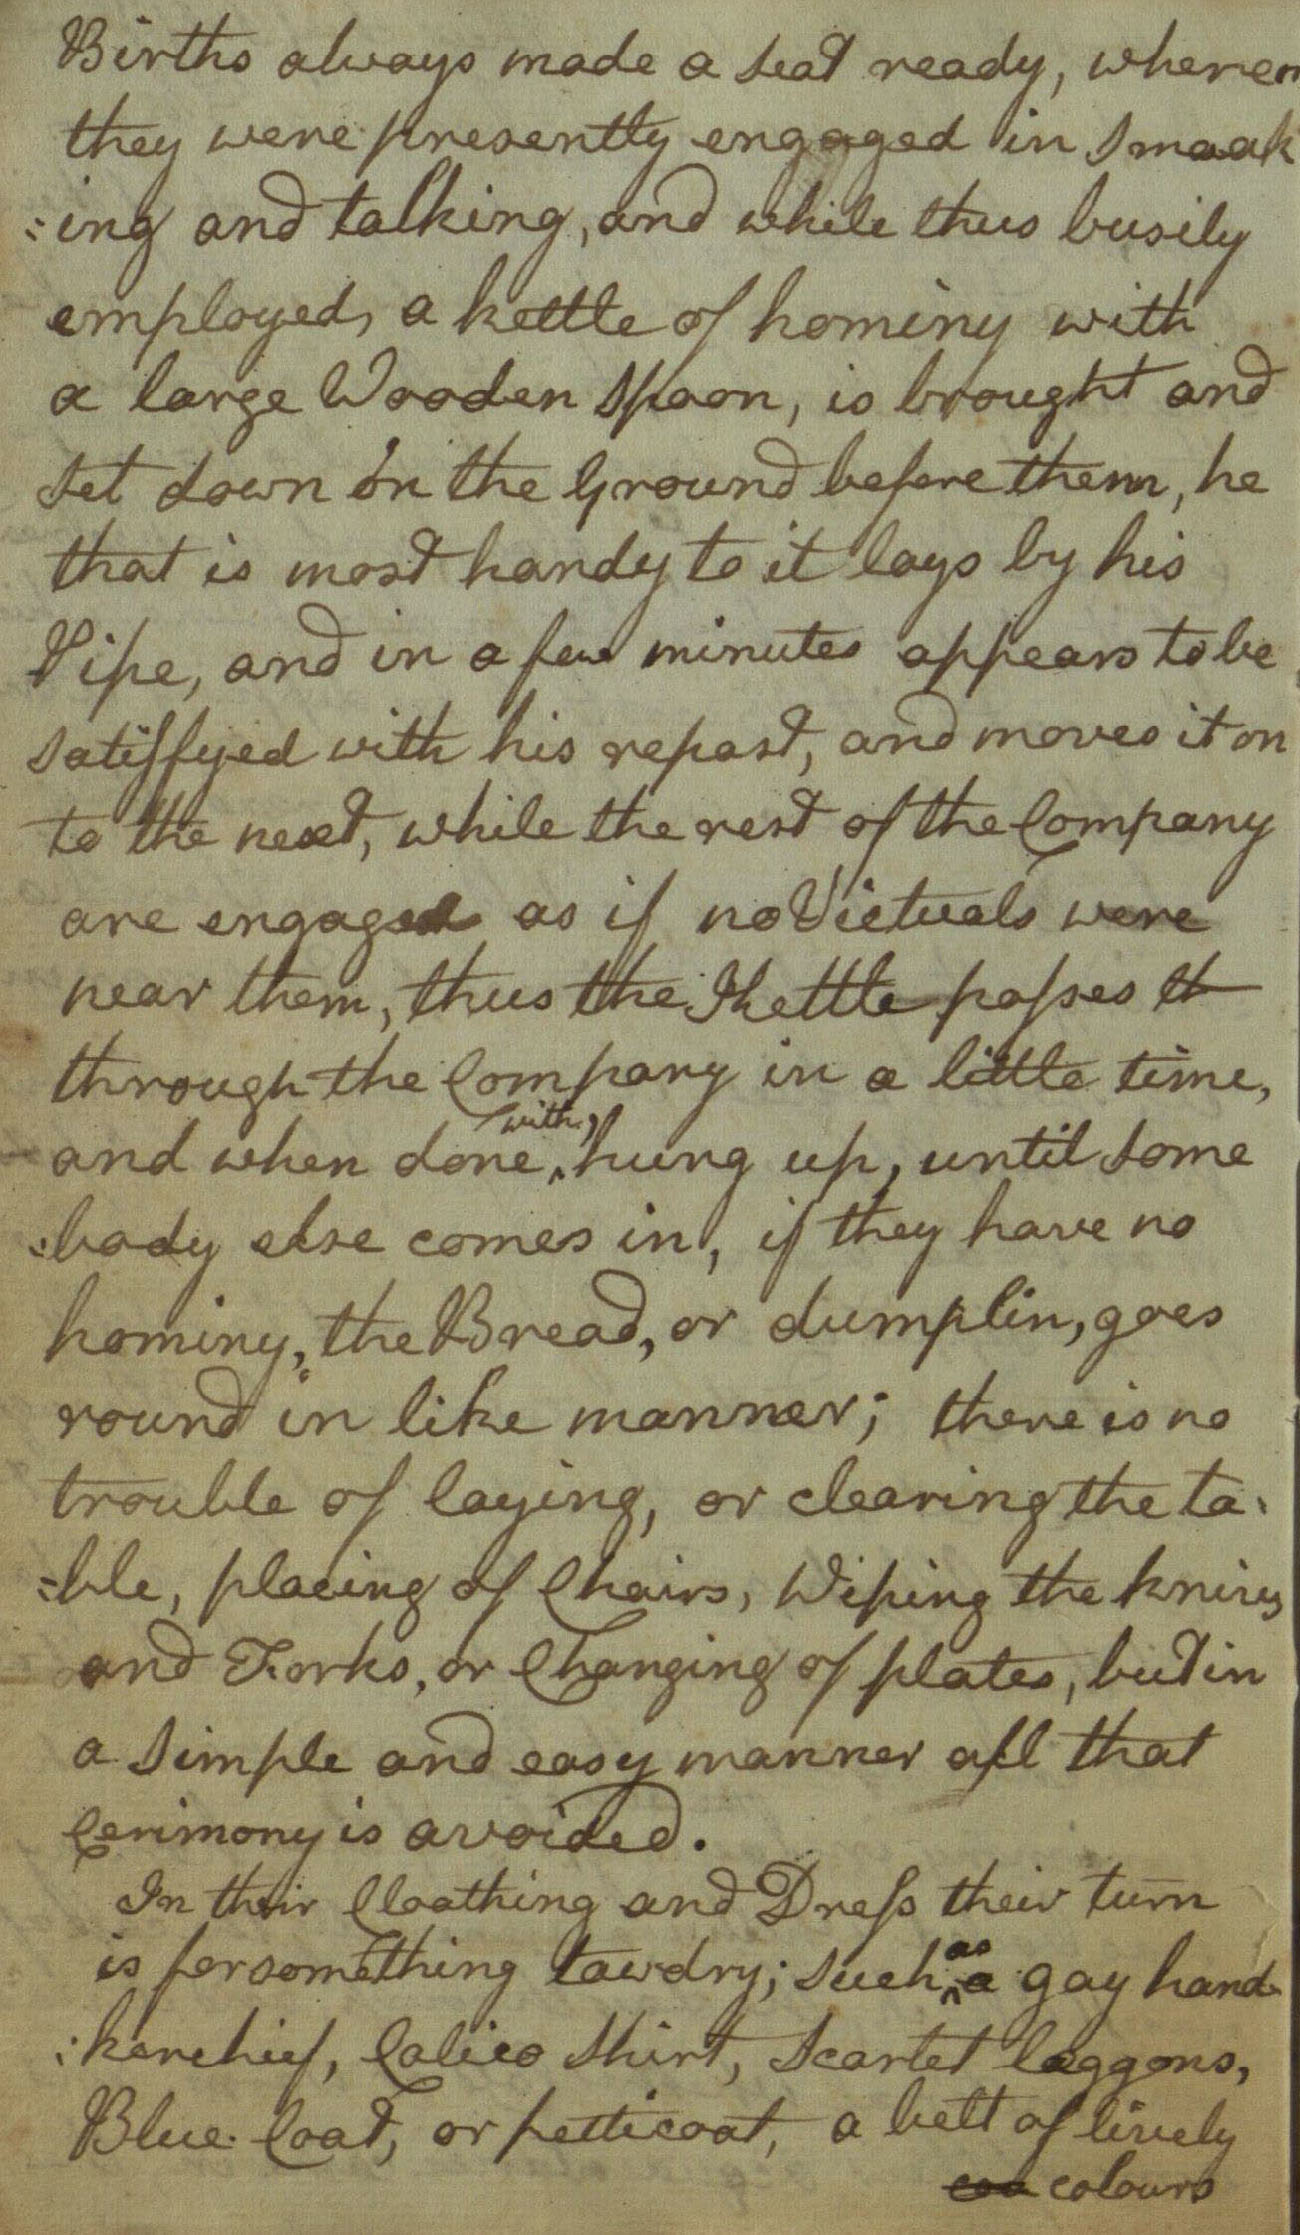 Births always made a seat ready, whereon
they were presently engaged in Smoak
=ing and talking, and while thus busily
employed, a kettle of hominy with
a large Wooden Spoon, is brought and
set down on the Ground before them, he
that is most handy to it lays by his
Pipe, and in a few minutes appears to be
satisfyed with his repast, and moves it on
to the next, while the rest of the Company
are engaged as if no Victuals were
near them, thus the Kettle passes th
through the Company in a little time,
and when done with, hung up, until some
:body else comes in, if they have no
hominy, the Bread, or dumplin, goes
round in like manner; there is no
trouble of laying, or clearing the ta:
=ble, placing of Chairs, Wiping the knives
and Forks, or Changing of plates, but in
a simple and easy manner all that
Cerimony is avoided.
In their Cloathing and Dress their turn
is for something tawdry; such as a gay hand
:kerchief, Calico Shirt, Scarlet leggons,
Blue Coat, or petticoat, a belt of lively
coa colours